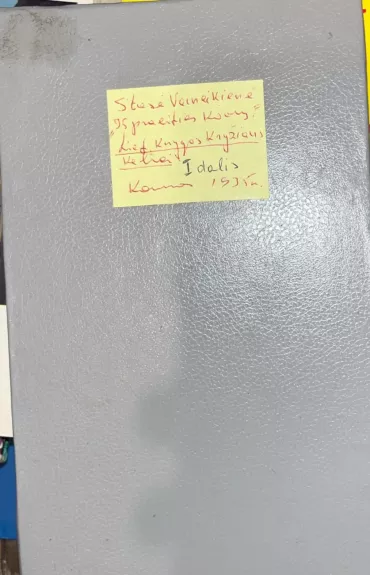 Stasė Vaineikienė
"Iš praeities kovų."
Liet. Knygos Kryžiaus
Keliai I dalis
Kaunas 1935 m.